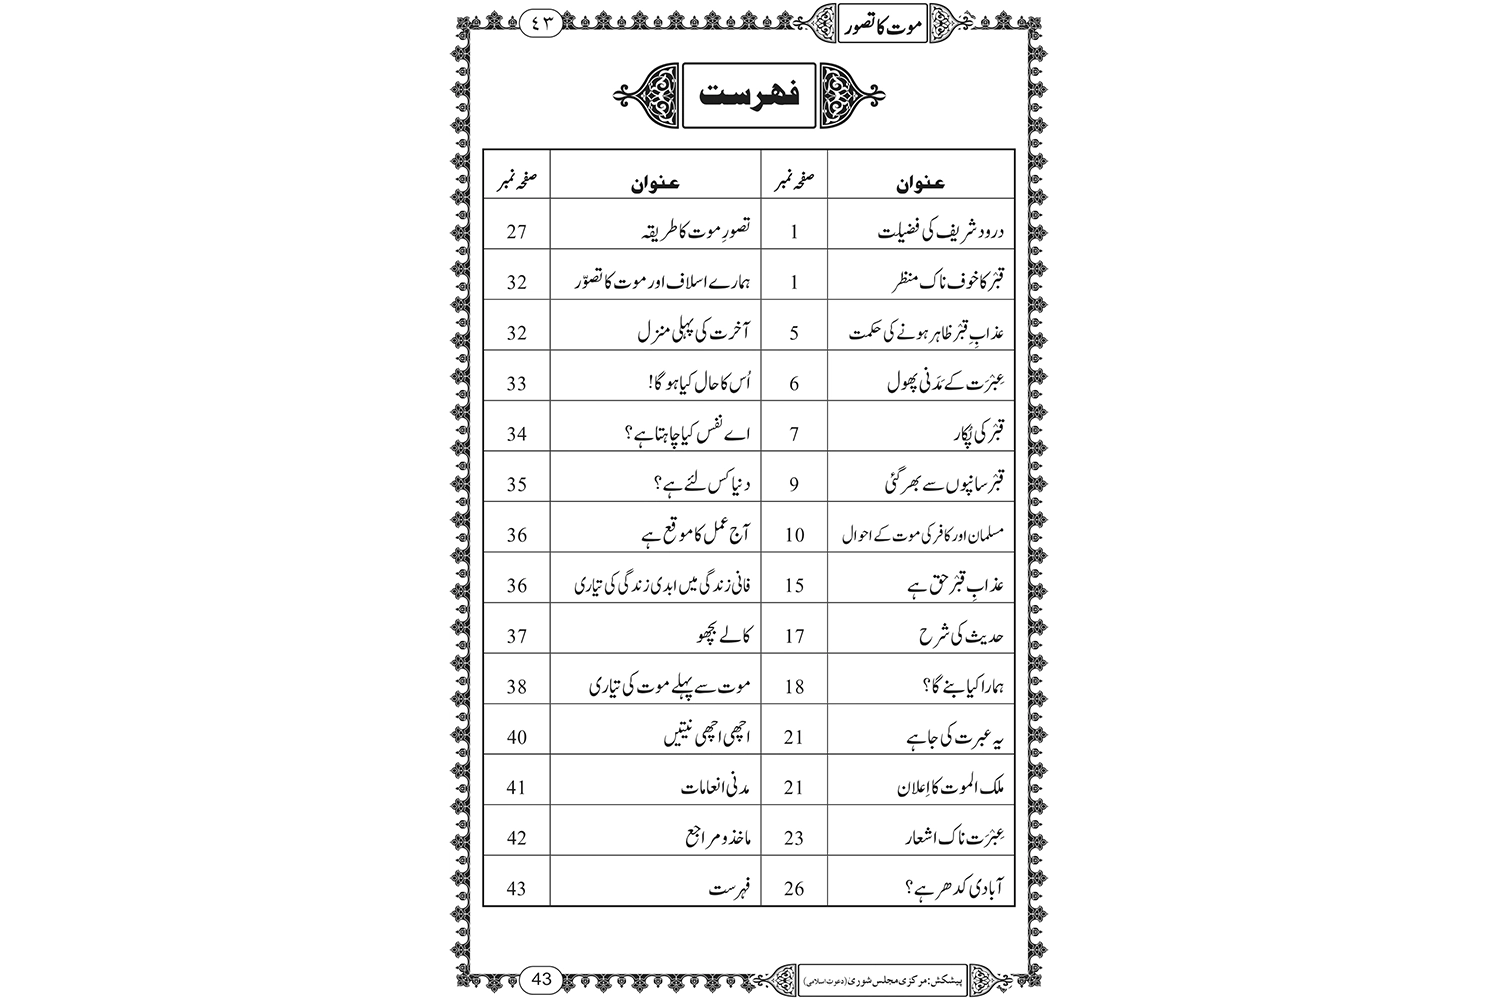 موت کا تصور ٤٣
فہرست
عنوان صفحہ نمبر عنوان صفحہ نمبر
درود شریف کی فضیلت 1 تصورِ موت کا طریقہ 27
قبْر کا خوف ناک منظر 1 ہمارے اسلاف اور موت کا تصوّر 32
عذابِ قبْر ظاہر ہونے کی حکمت 5 آخرت کی پہلی منزل 32
عِبْرَت کے مَدَنی پھول 6 اُس کا حال کیا ہو گا! 33
قبْر کی پُکار 7 اے نفس کیا چاہتا ہے؟ 34
قبْر سانپوں سے بھر گئی 9 دنیا کس لئے ہے؟ 35
مسلمان اور کافر کی موت کے احوال 10 آج عمل کا موقع ہے 36
عذابِ قبْر حق ہے 15 فانی زندگی میں ابدی زندگی کی تیاری 36
حدیث کی شرح 17 کالے بچھو 37
ہمارا کیا بنے گا؟ 18 موت سے پہلے موت کی تیاری 38
یہ عبرت کی جا ہے 21 اچھی اچھی نیتیں 40
ملک الموت کا اِعلان 21 مدنی انعامات 41
عِبْرَت ناک اشعار 23 ماخذ و مراجع 42
آبادی کدھر ہے؟ 26 فہرست 43
پیشکش: مرکزی مجلس شوریٰ (دعوت اسلامی) 43